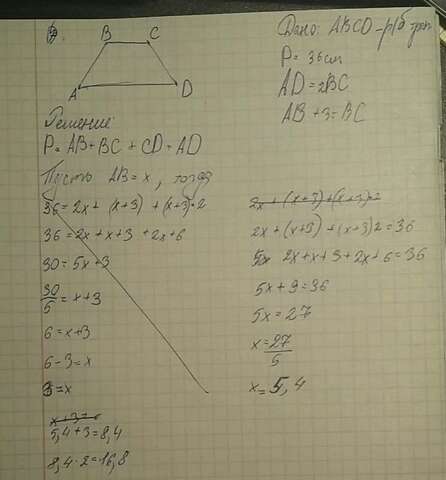 B C
A D
Дано: ABCD - р/б трап
P = 36 см
AD = 2BC
AB + 3 = BC
Решение:
P = AB + BC + CD + AD
Пусть AB = x, тогда
36 = 2x + (x+3) + (x+3)·2
36 = 2x + x + 3 + 2x + 6
30 = 5x + 3
30/5 = x + 3
6 = x + 3
6 - 3 = x
3 = x
x + 3 =
5,4 + 3 = 8,4
8,4 · 2 = 16,8
2x + (x+3) + (x+3)·2
2x + (x+3) + (x+3)2 = 36
5x 2x + x + 3 + 2x + 6 = 36
5x + 9 = 36
5x = 27
x = 27/5
x = 5,4